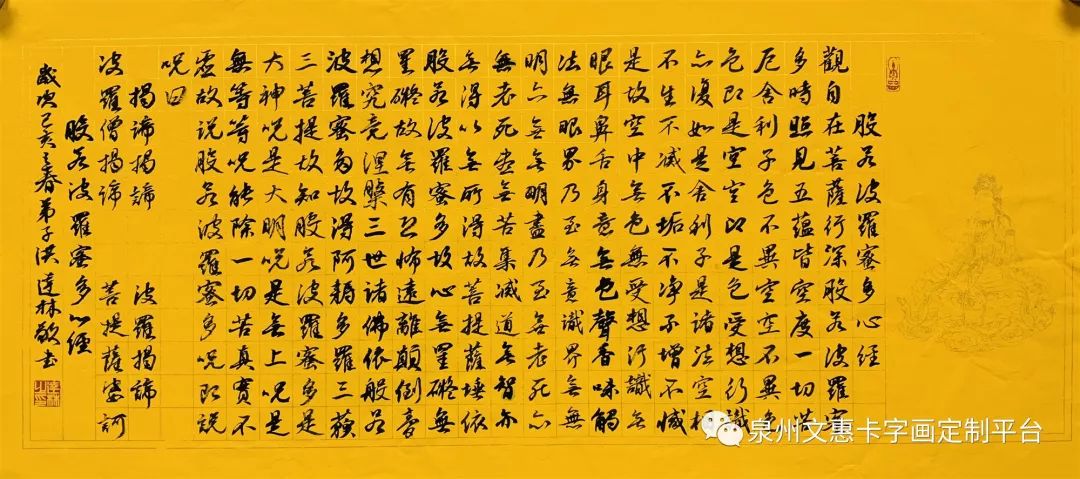 般若波羅蜜多心經
觀自在菩薩行深般若波羅蜜
多時照見五蘊皆空度一切苦
厄舍利子色不異空空不異色
色即是空空即是色受想行識
亦復如是舍利子是諸法空相
不生不滅不垢不淨不增不減
是故空中無色無受想行識無
眼耳鼻舌身意無色聲香味觸
法無眼界乃至無意識界無無
明亦無無明盡乃至無老死亦
無老死盡無苦集滅道無智亦
無得以無所得故菩提薩埵依
般若波羅蜜多故心無罣礙無
罣礙故無有恐怖遠離顛倒夢
想究竟涅槃三世諸佛依般若
波羅蜜多故得阿耨多羅三藐
三菩提故知般若波羅蜜多是
大神呪是大明呪是無上呪是
無等等呪能除一切苦真實不
虛故說般若波羅蜜多呪即說
呪曰
揭諦揭諦 波羅揭諦
波羅僧揭諦 菩提薩婆訶
般若波羅蜜多心經
歲次己亥之春弟子洪達林敬書
泉州文惠卡字画定制平台